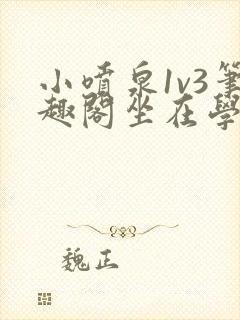 小噴泉1v3筆
趣閣坐在學
魏正